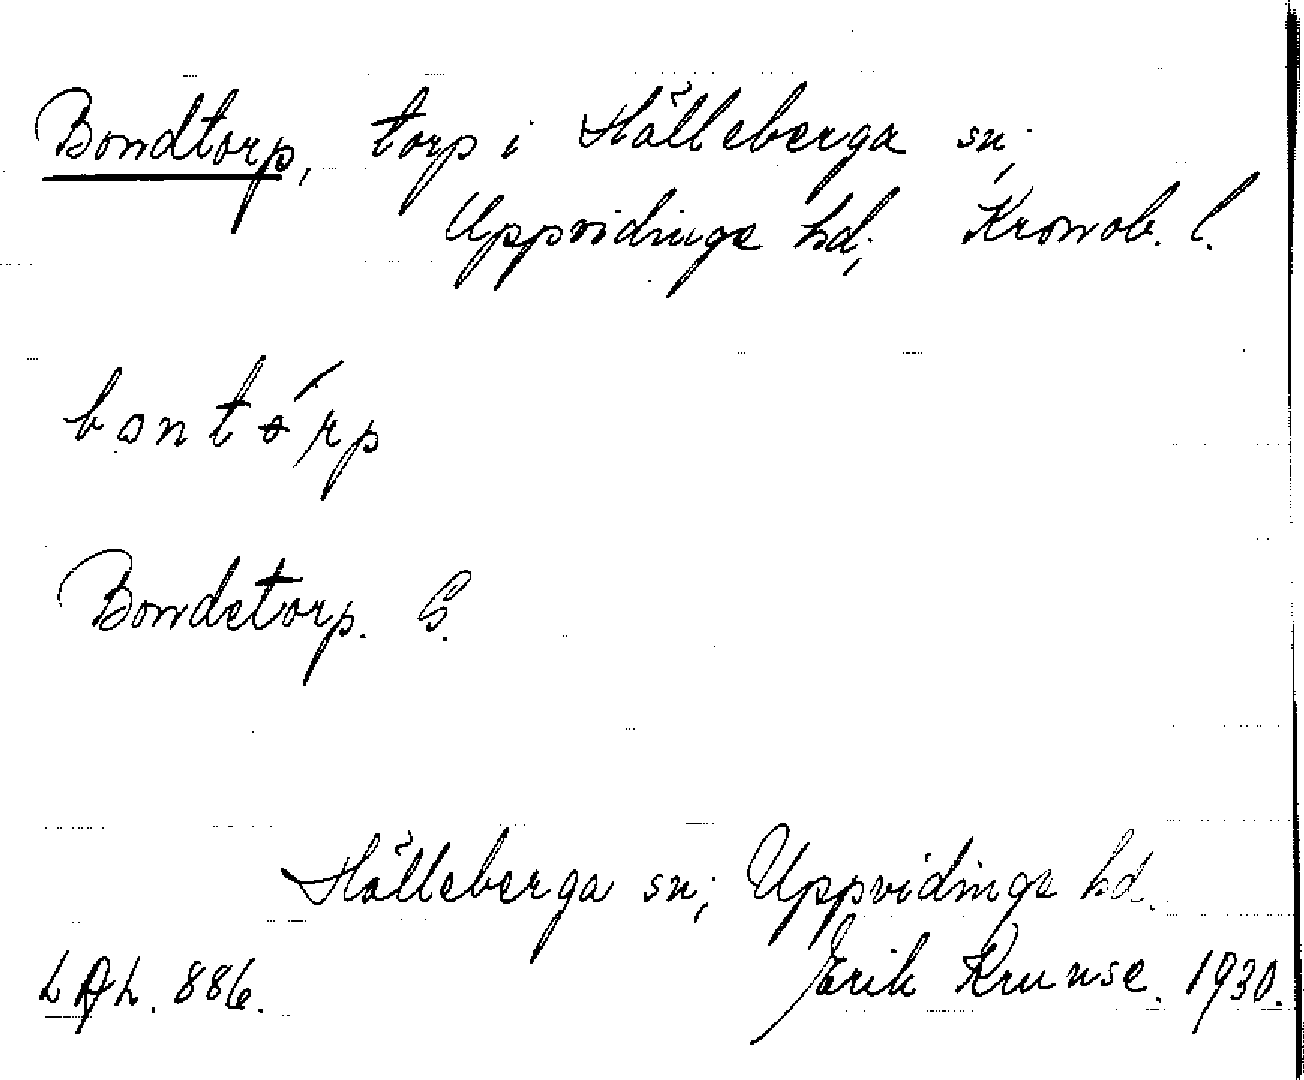 Bondtorp, torp i Hälleberga sn;
Uppvidinge hd; Kronob. l.
bontórp
Bondetorp. G.
Hälleberga sn; Uppvidinge hd.
LAL. 886. Erik Krunse. 1930.